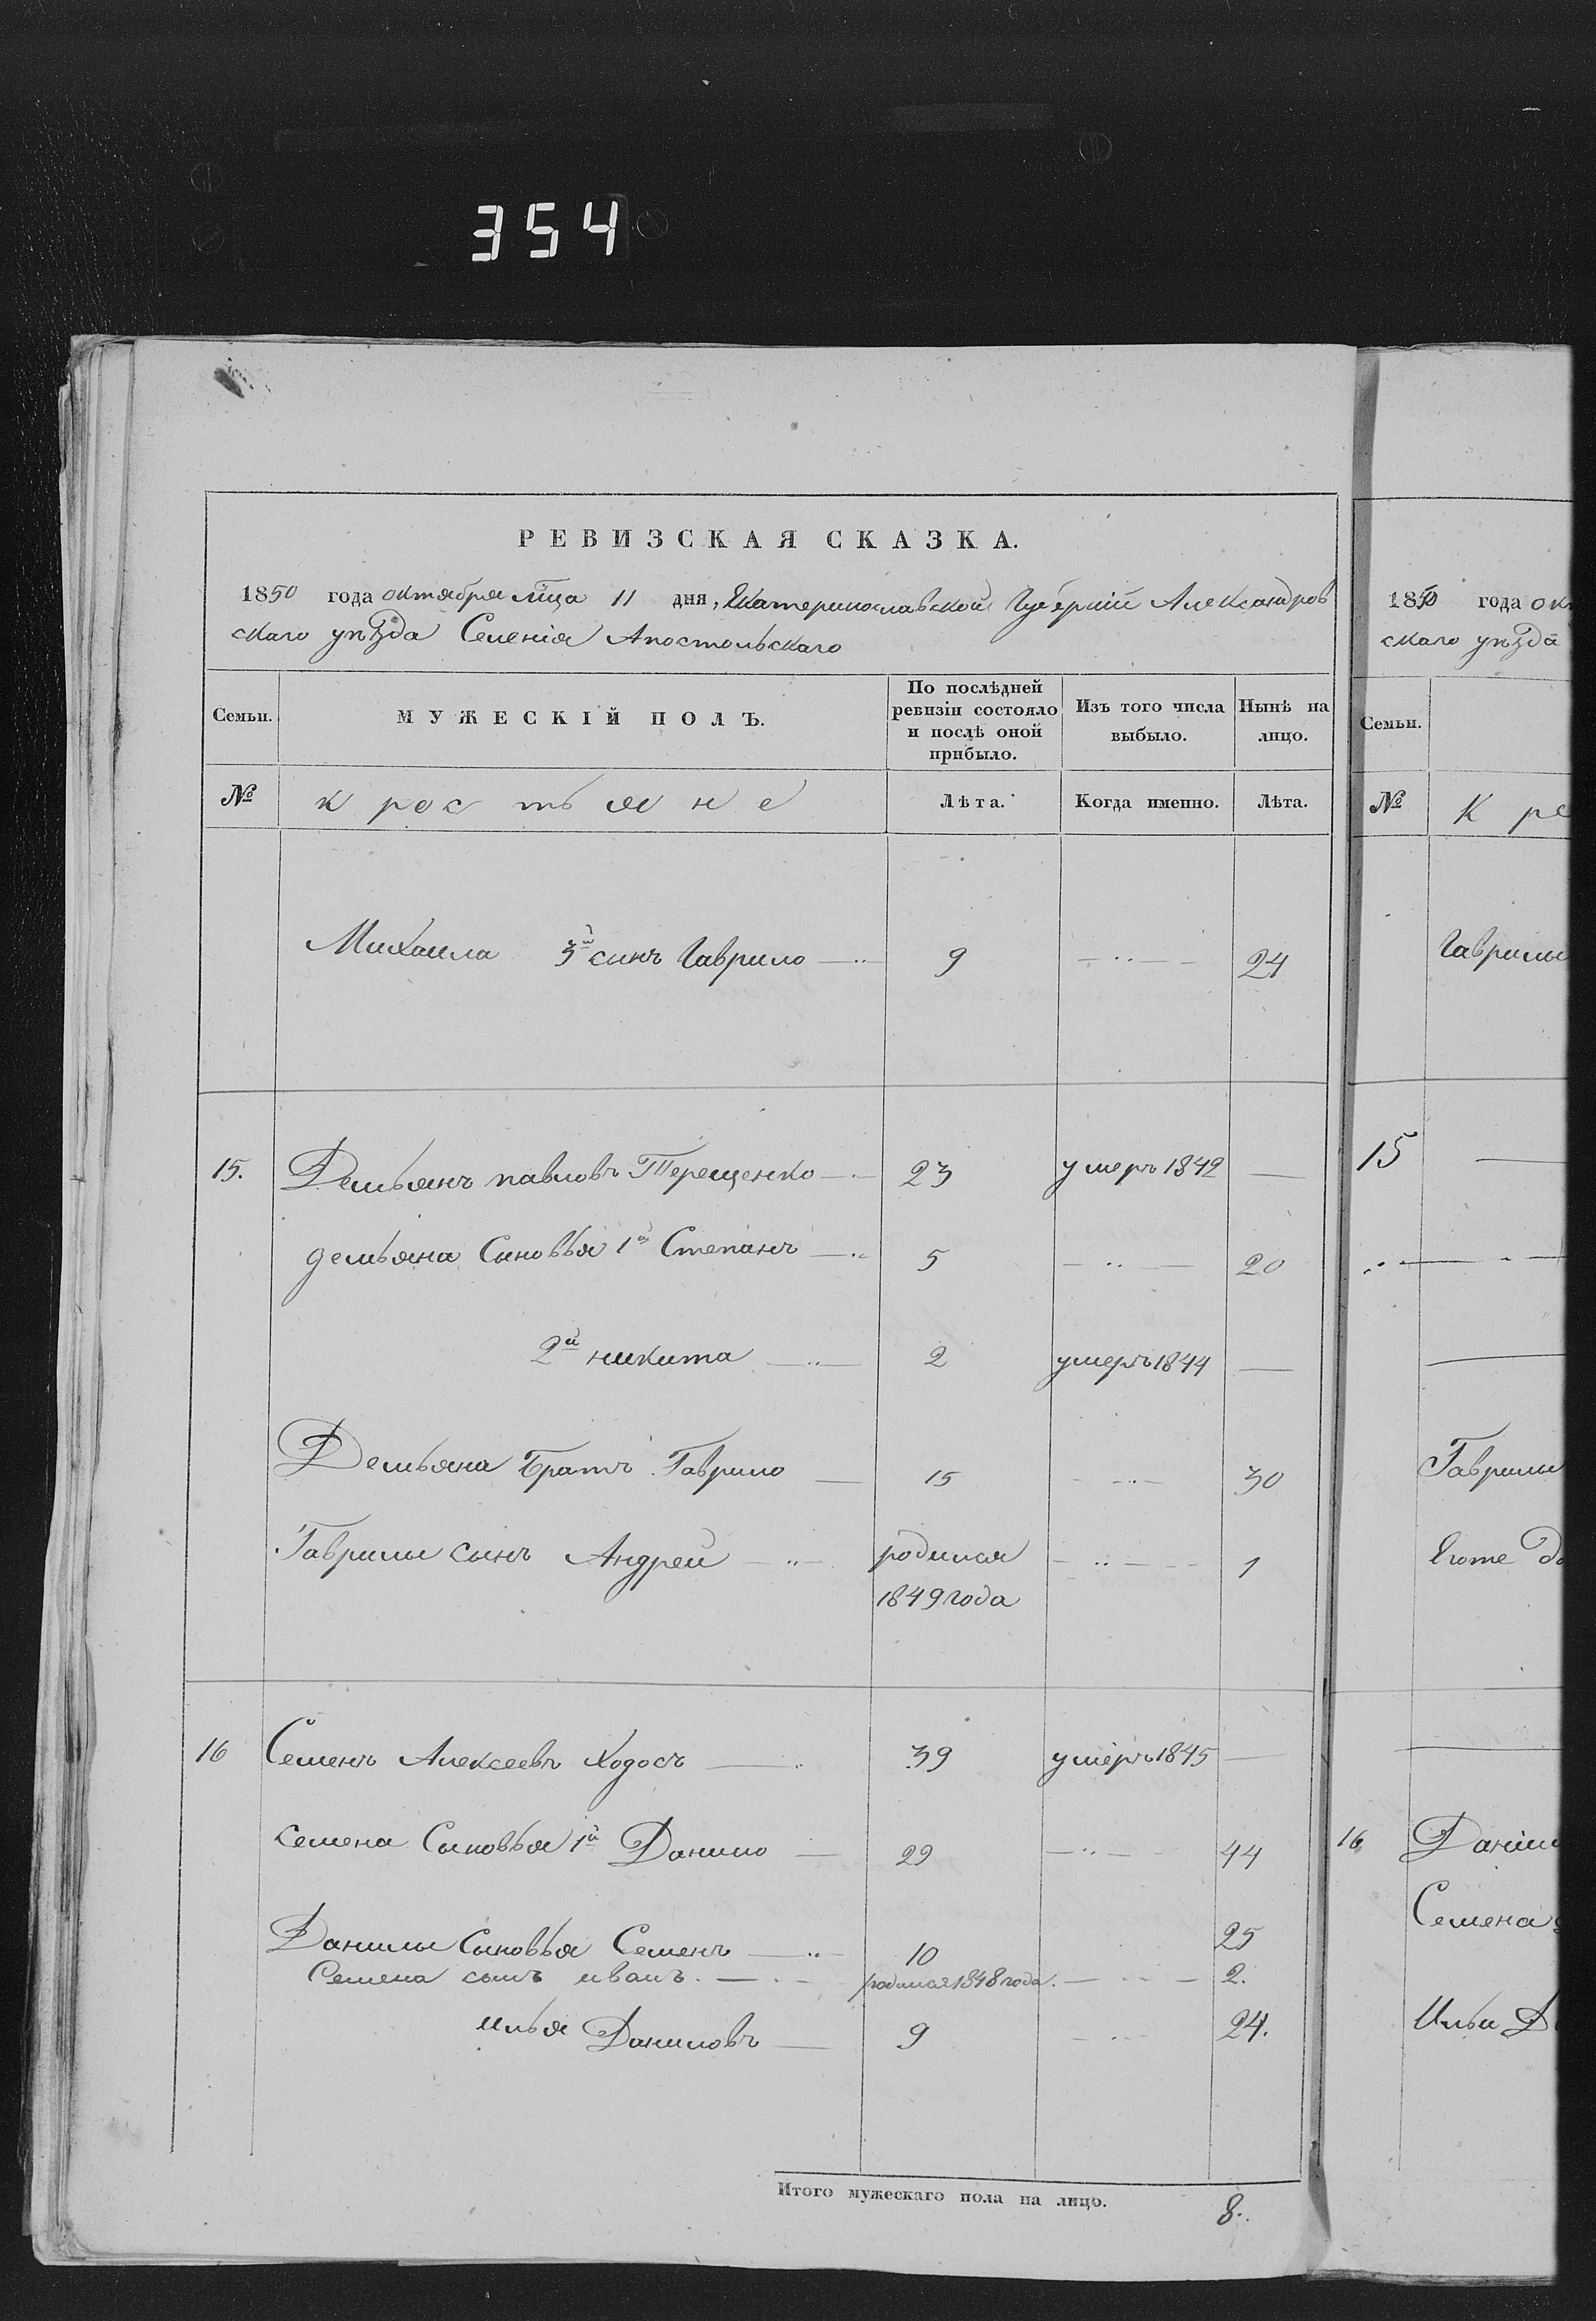 354
РЕВИЗСКАЯ СКАЗКА.
1850 года октября мца 11 дня, Екатеринославской Губерніи Александров
скаго уѣзда Селенія Апостольскаго
Семьи. МУЖЕСКІЙ ПОЛЪ. По послѣдней ревизіи состояло и послѣ оной прибыло. Изъ того числа выбыло. Нынѣ на лицо.
№ крестьяне Лѣта. Когда именно. Лѣта.
Михаила 3й синъ Гаврило 9 24
15. Демьянъ павловъ Терещенко 23 умеръ 1842 —
демьяна Синовья 1й Степанъ 5 20
2й никита 2 умеръ 1844 —
Демьяна Братъ Гаврило 15 30
Гаврилы сынъ Андрей родился 1
1849 года
16 Семенъ Алексеевъ Ходосъ 39 умеръ 1845 —
семена Сыновья 1й Данило 29 44
Данилы Сыновья Семенъ 10 25
Семена сынъ иванъ. родился 1848 года. 2.
илья Даниловъ 9 24.
Итого мужескаго пола на лицо. 8.
1850 года ок
скаго уѣзда
Семьи.
№ К ре
Гаврилы
15
Гаврилы
Егоже До
16 Данилы
Семена
Ильи Д